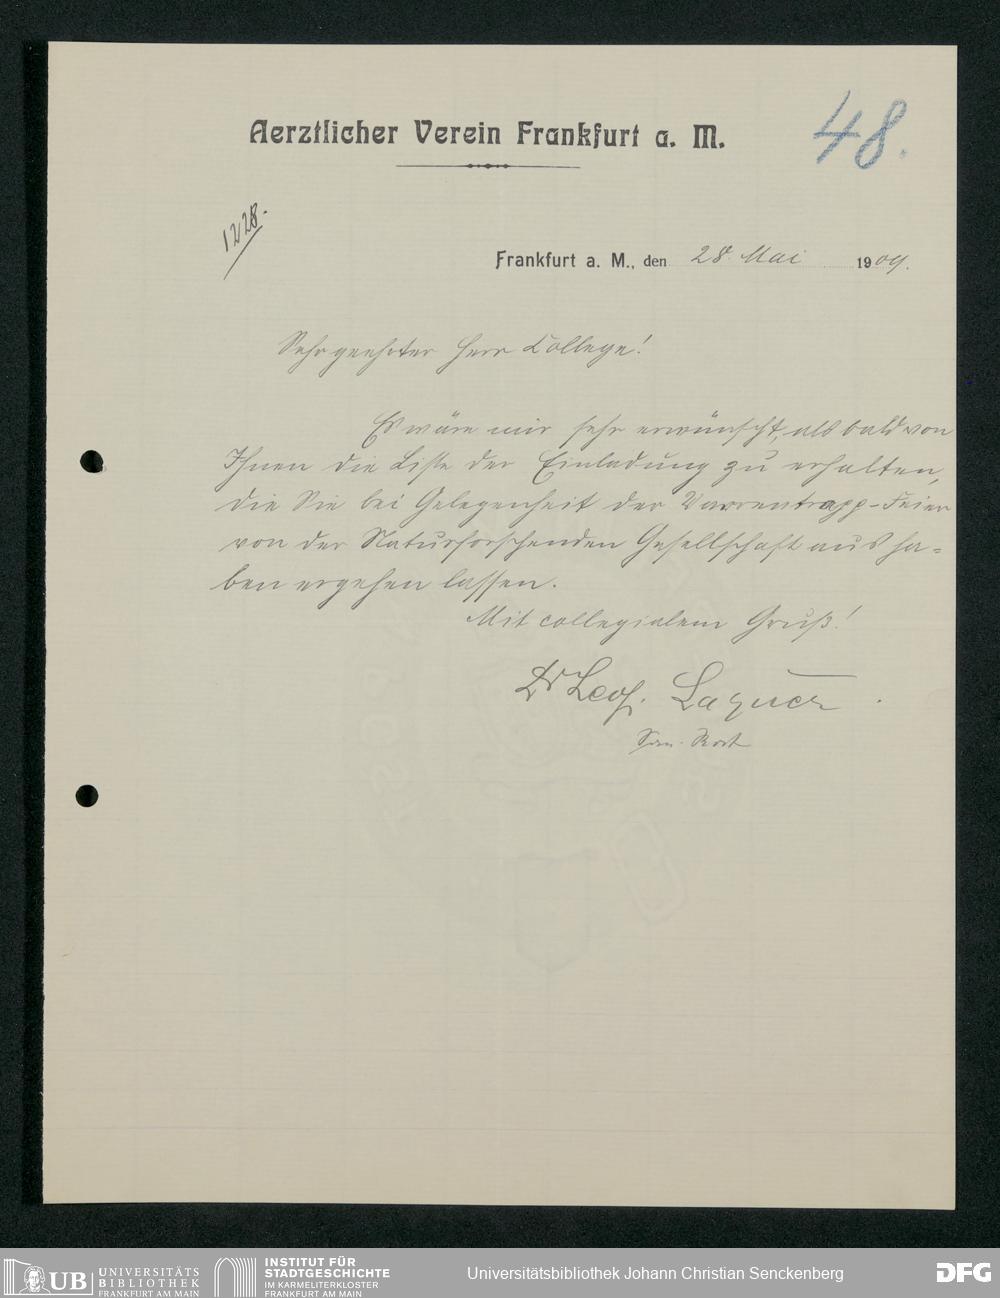 Aerztlicher Verein Frankfurt a. M.
48.
1228.
Frankfurt a. M., den 28. Mai 1909.
Sehr geehrter Herr College!
Es wäre mir sehr erwünscht, als bald von
Ihnen die Liste der Einladung zu erhalten,
die Sie bei Gelegenheit der Varrentrapp-Feier
von der Naturforschenden Gesellschaft aus ha-
ben ergehen lassen.
Mit collegialem Gruß!
Dr Leop. Laquer.
San. Rath
UB UNIVERSITÄTS
BIBLIOTHEK
FRANKFURT AM MAIN
INSTITUT FÜR
STADTGESCHICHTE
IM KARMELITERKLOSTER
FRANKFURT AM MAIN
Universitätsbibliothek Johann Christian Senckenberg
DFG